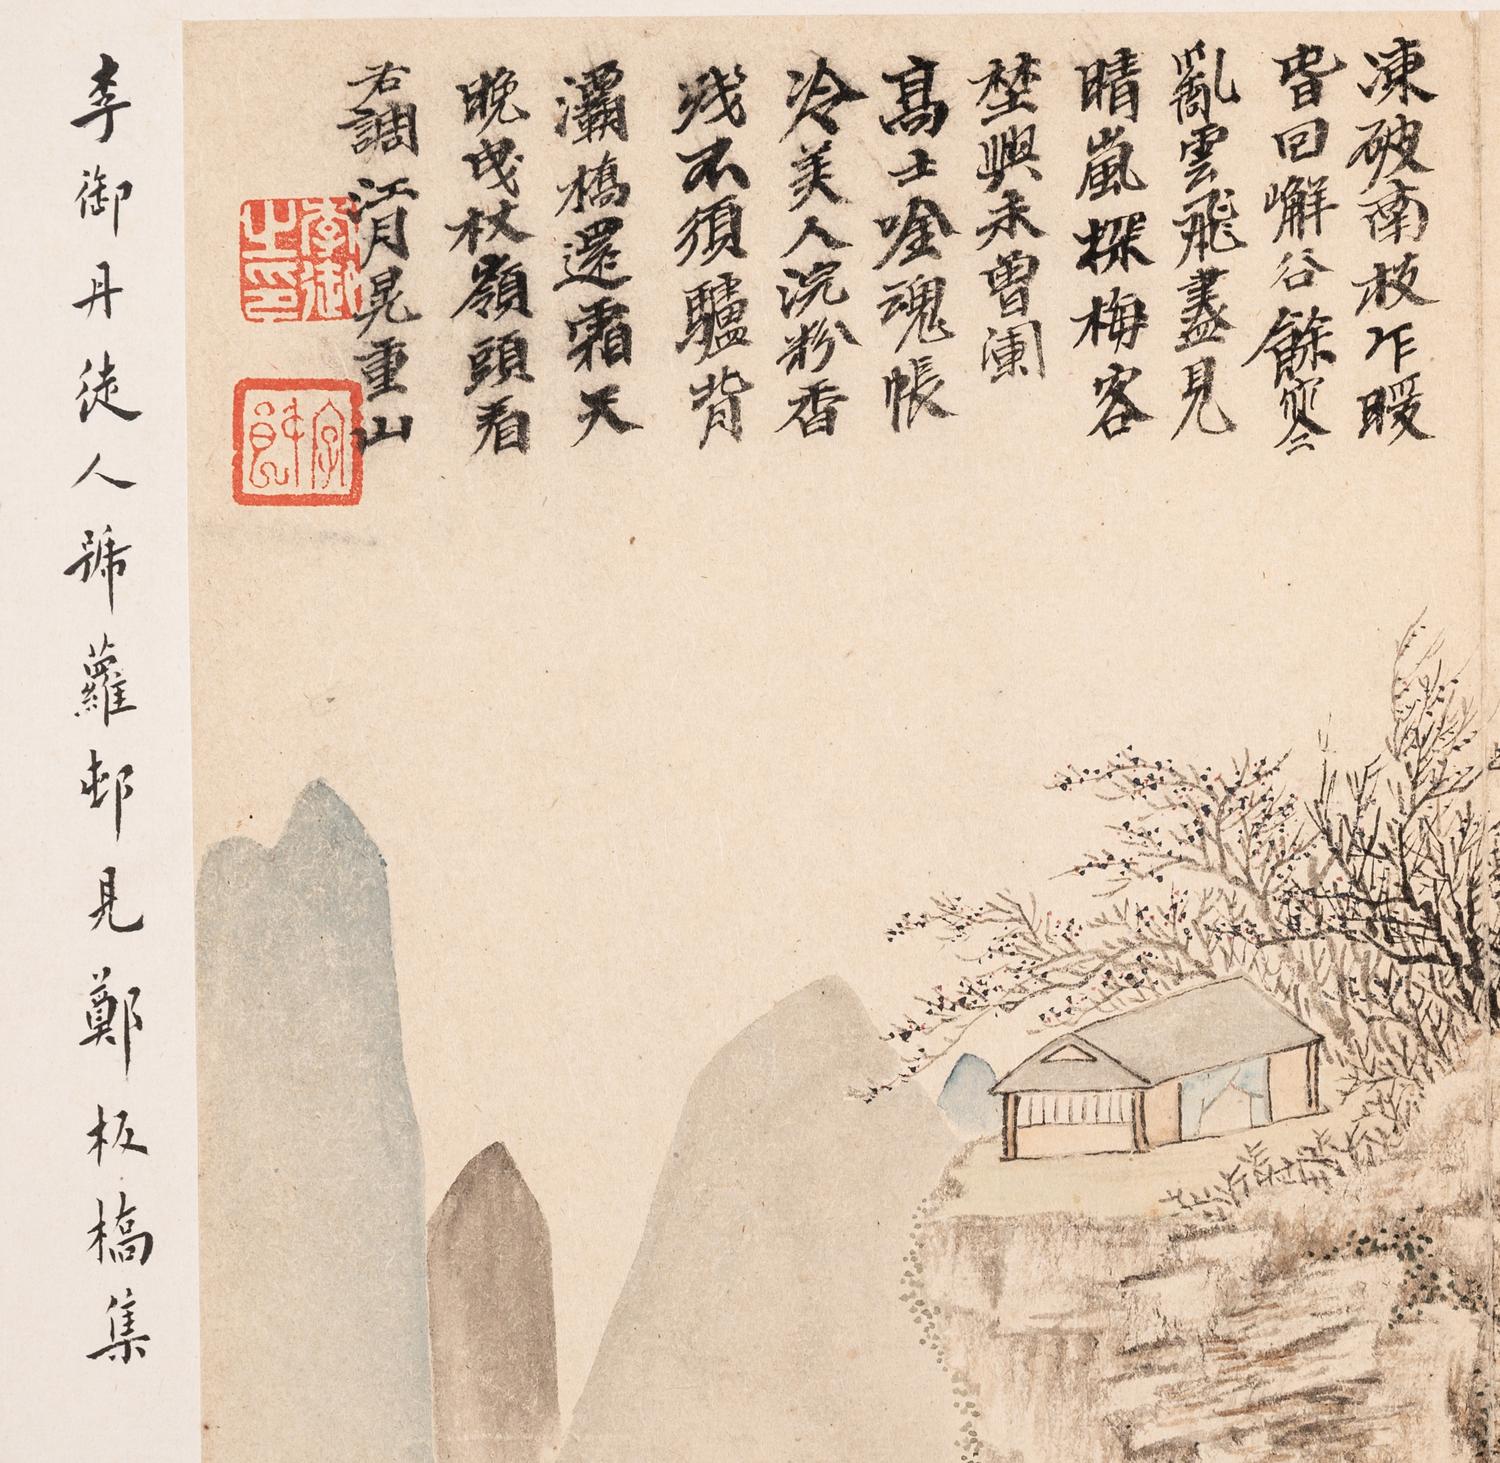 凍破南枝乍暖
皆回嶰谷餘寒
亂雲飛盡見
晴嵐探梅客
埜興未曾闌
高士唫魂帳
冷美人浣粉香
残不須驢背
灞橋還霜天
晚曳杖嶺頭看
右調江月晃重山
李御之印
李御丹徒人號蘿邨見鄭板橋集